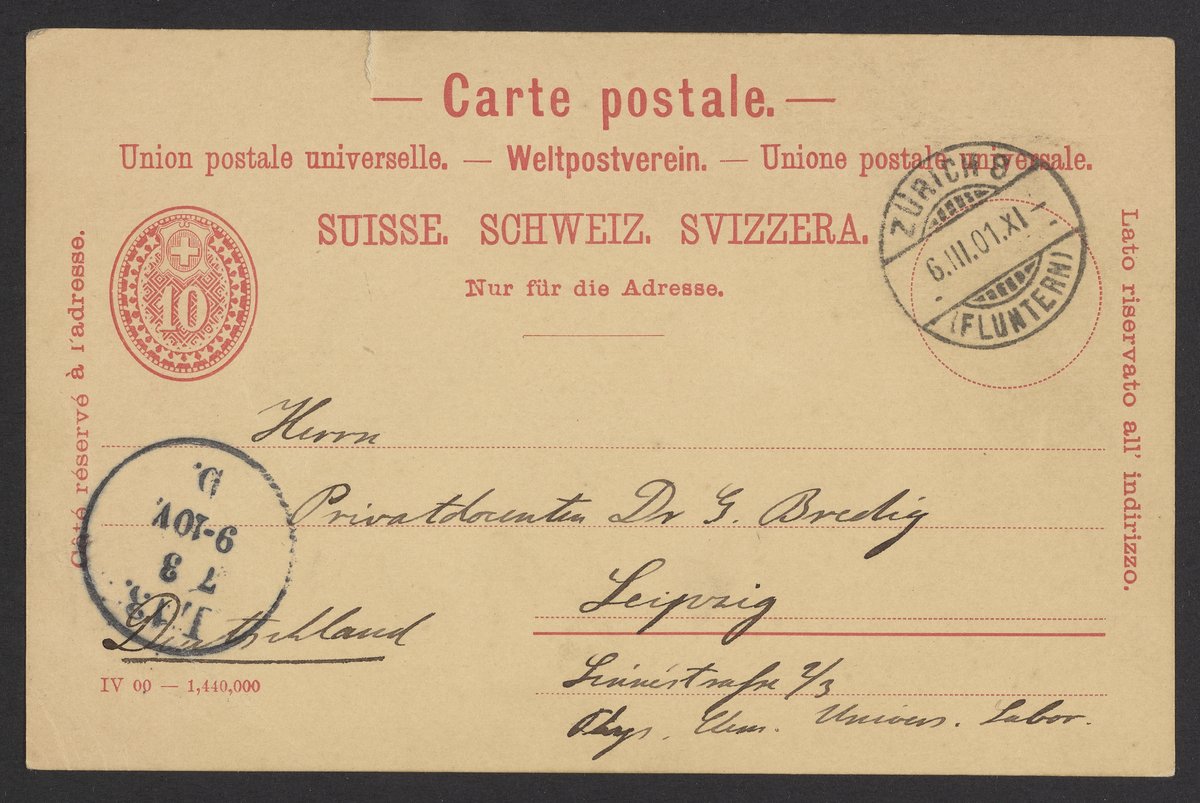 — Carte postale. —
Union postale universelle. — Weltpostverein. — Unione postale universale.
SUISSE. SCHWEIZ. SVIZZERA.
Nur für die Adresse.
10
ZÜRICH 8
6.III.01.XI –
(FLUNTERN)
Côté réservé à l'adresse.
Lato riservato all' indirizzo.
Herrn
Privatdocenten Dr G. Bredig
Leipzig
Deutschland
Linnéstrasse 2/3
Phys. Chem. Univers. Labor.
L. 13.
7 3
9-10V.
D.
IV 00 — 1,440,000